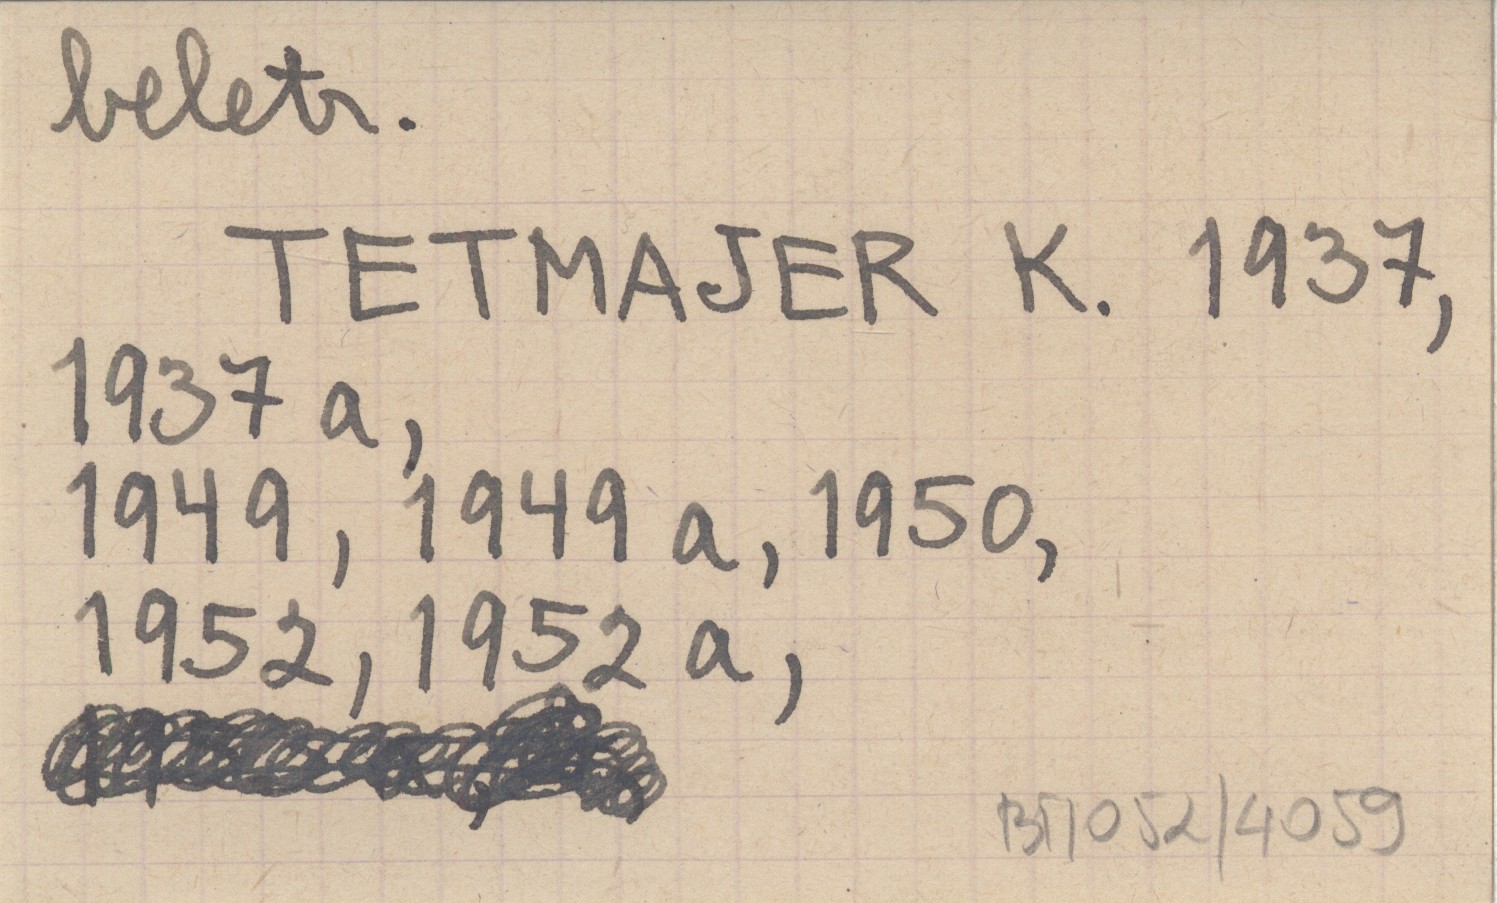 beletr.
TETMAJER K. 1937,
1937 a,
1949, 1949 a, 1950,
1952, 1952 a,
BT/052/4059